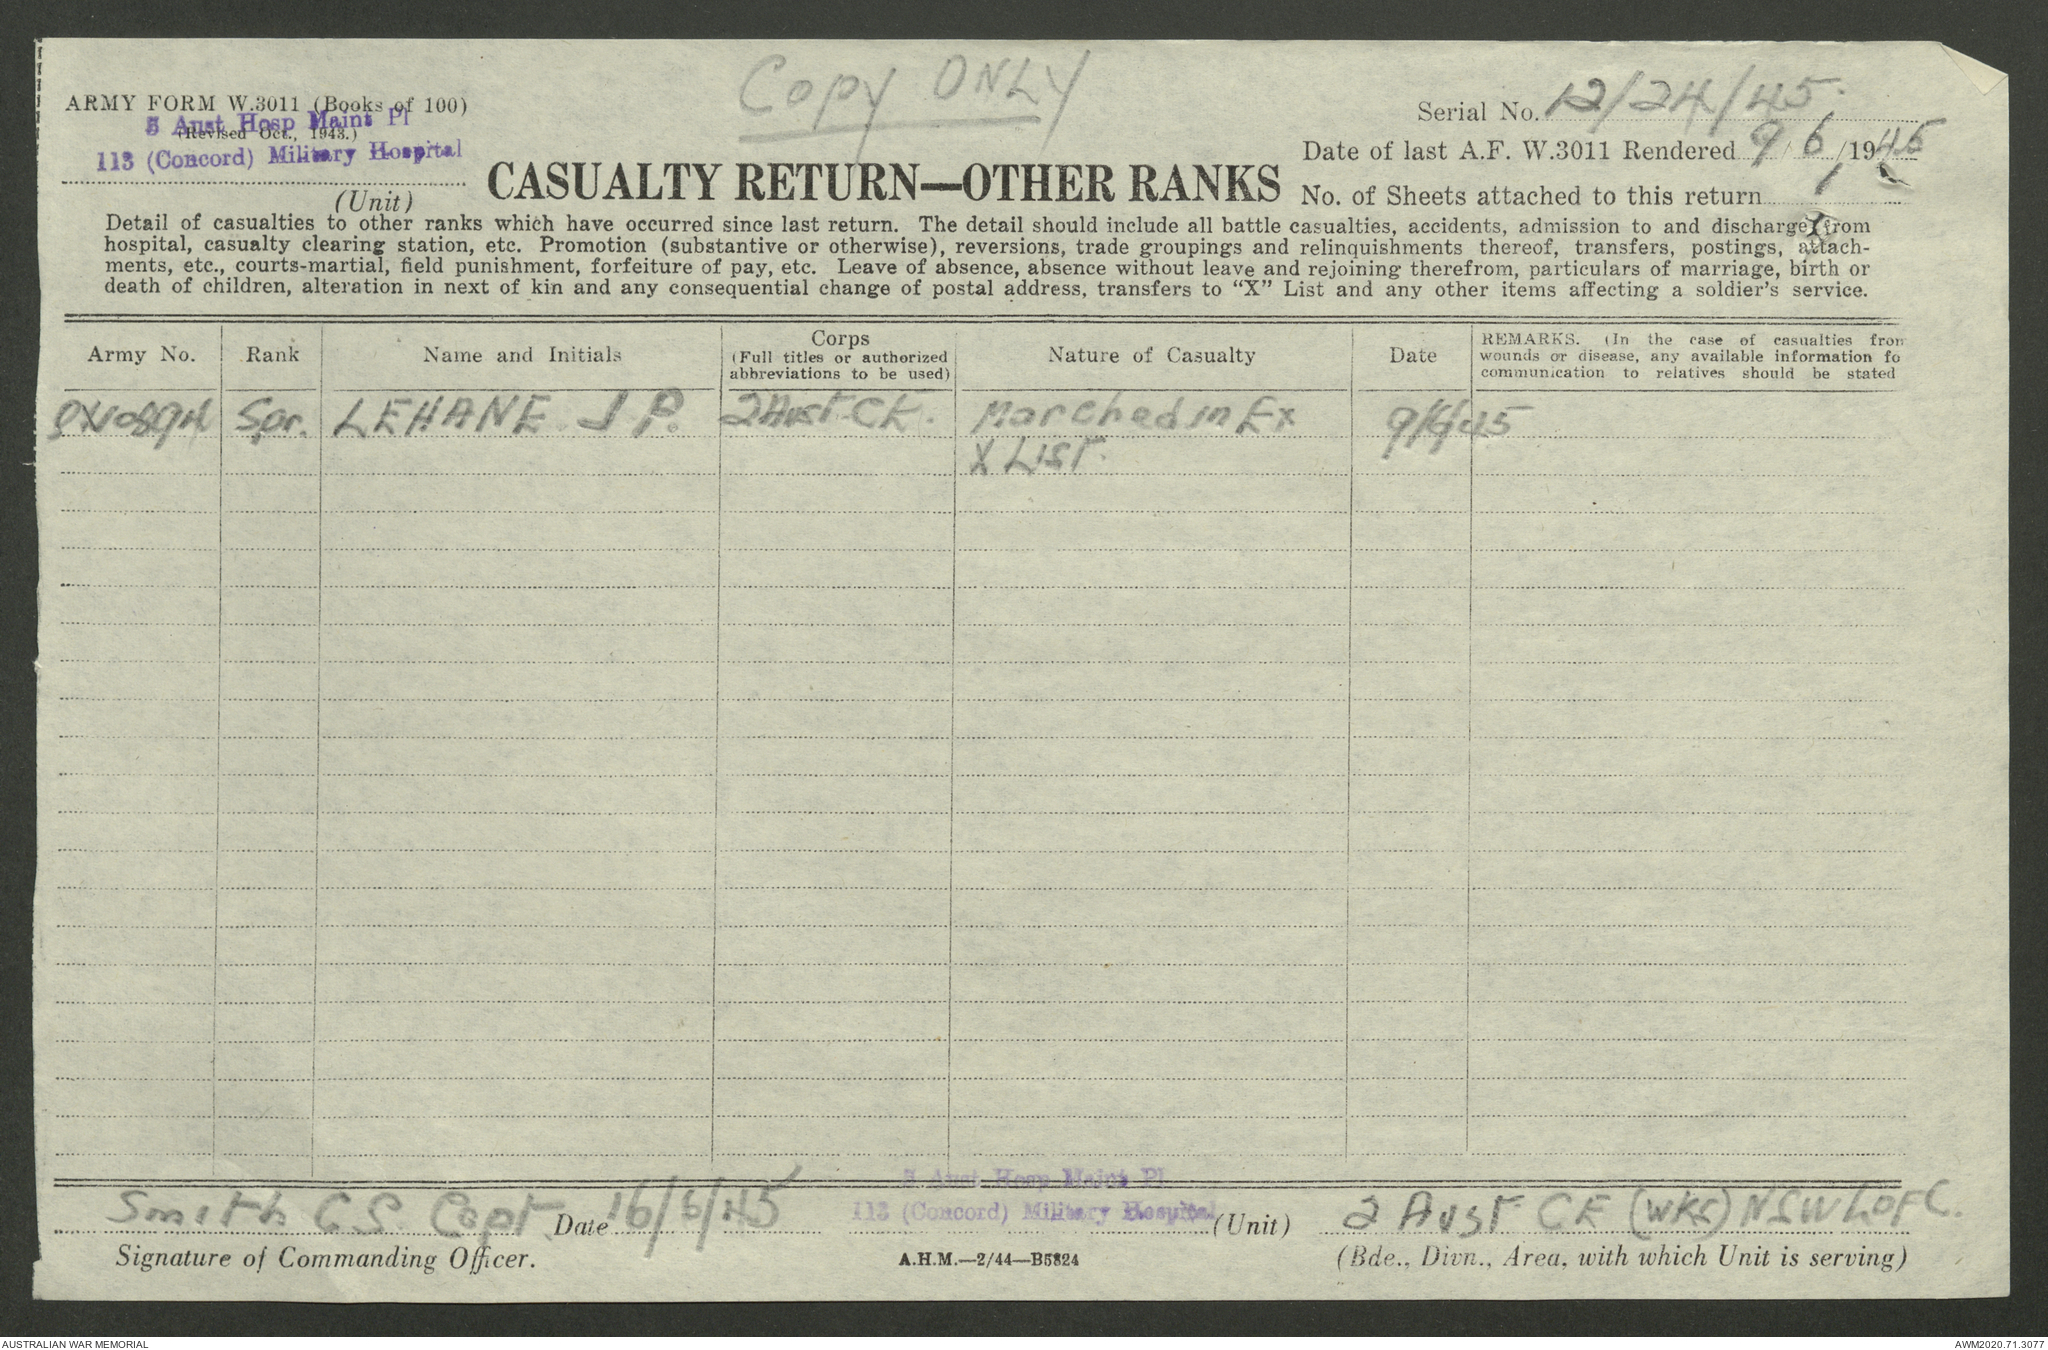 Copy ONLY
ARMY FORM W.3011 (Books of 100)
(Revised Oct., 1943.)
5 Aust Hosp Maint Pl
113 (Concord) Military Hospital
(Unit)
Serial No. 12/24/45.
Date of last A.F. W.3011 Rendered 9/6/1945
No. of Sheets attached to this return 1
CASUALTY RETURN—OTHER RANKS
Detail of casualties to other ranks which have occurred since last return. The detail should include all battle casualties, accidents, admission to and discharge from
hospital, casualty clearing station, etc. Promotion (substantive or otherwise), reversions, trade groupings and relinquishments thereof, transfers, postings, attach-
ments, etc., courts-martial, field punishment, forfeiture of pay, etc. Leave of absence, absence without leave and rejoining therefrom, particulars of marriage, birth or
death of children, alteration in next of kin and any consequential change of postal address, transfers to "X" List and any other items affecting a soldier's service.
Army No.
Rank
Name and Initials
Corps
(Full titles or authorized
abbreviations to be used)
Nature of Casualty
Date
REMARKS. (In the case of casualties from
wounds or disease, any available information fo
communication to relatives should be stated
Spr. LEHANE J P. 2 Aust CE. Marched in Ex 9/6/45
X List.
Smith C.S. Capt. Date 16/6/45
5 Aust Hosp Maint Pl
113 (Concord) Military Hospital (Unit)
2 Aust CE (WKS) NSW L OF C.
Signature of Commanding Officer.
A.H.M.—2/44—B5824
(Bde., Divn., Area, with which Unit is serving)
AUSTRALIAN WAR MEMORIAL
AWM2020.71.3077